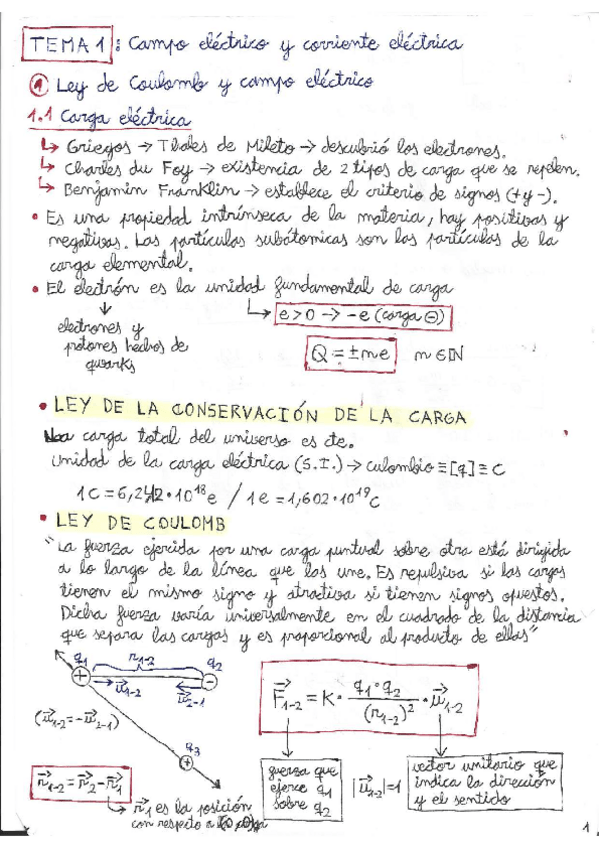 TEMA 1: Campo eléctrico y corriente eléctrica
① Ley de Coulomb y campo eléctrico
1.1 Carga eléctrica
↳ Griegos → Thales de Mileto → descubrió los electrones.
↳ Charles du Foy → existencia de 2 tipos de carga que se repelen.
↳ Benjamin Franklin → establece el criterio de signos (+ y -).
• Es una propiedad intrínseca de la materia, hay positivas y
negativas. Las partículas subátomicas son las partículas de la
carga elemental.
• El electrón es la unidad fundamental de carga
↳ e > 0 → -e (carga ⊖)
electrones y
protones hechos de
quarks
Q = ±ne n ∈ ℕ
• LEY DE LA CONSERVACIÓN DE LA CARGA
La carga total del universo es cte.
Unidad de la carga eléctrica (S.I.) → culombio ≡ [q] ≡ C
1C = 6,242·10¹⁸ e / 1e = 1,602·10¹⁹ C
• LEY DE COULOMB
"La fuerza ejercida por una carga puntual sobre otra está dirigida
a lo largo de la línea que las une. Es repulsiva si las cargas
tienen el mismo signo y atractiva si tienen signos opuestos.
Dicha fuerza varía universalmente en el cuadrado de la distancia
que separa las cargas y es proporcional al producto de ellas"
q₁ r₁₋₂ q₂
+ u⃗₁₋₂ u⃗₂₋₁ -
(u⃗₁₋₂ = -u⃗₂₋₁)
q₃
+
F⃗₁₋₂ = K · q₁·q₂ / (r₁₋₂)² · u⃗₁₋₂
fuerza que
ejerce q₁
sobre q₂
|u⃗₁₋₂| = 1
vector unitario que
indica la dirección
y el sentido
r⃗₁₋₂ = r⃗₂ - r⃗₁
↳ r⃗₁ es la posición
con respecto a
1